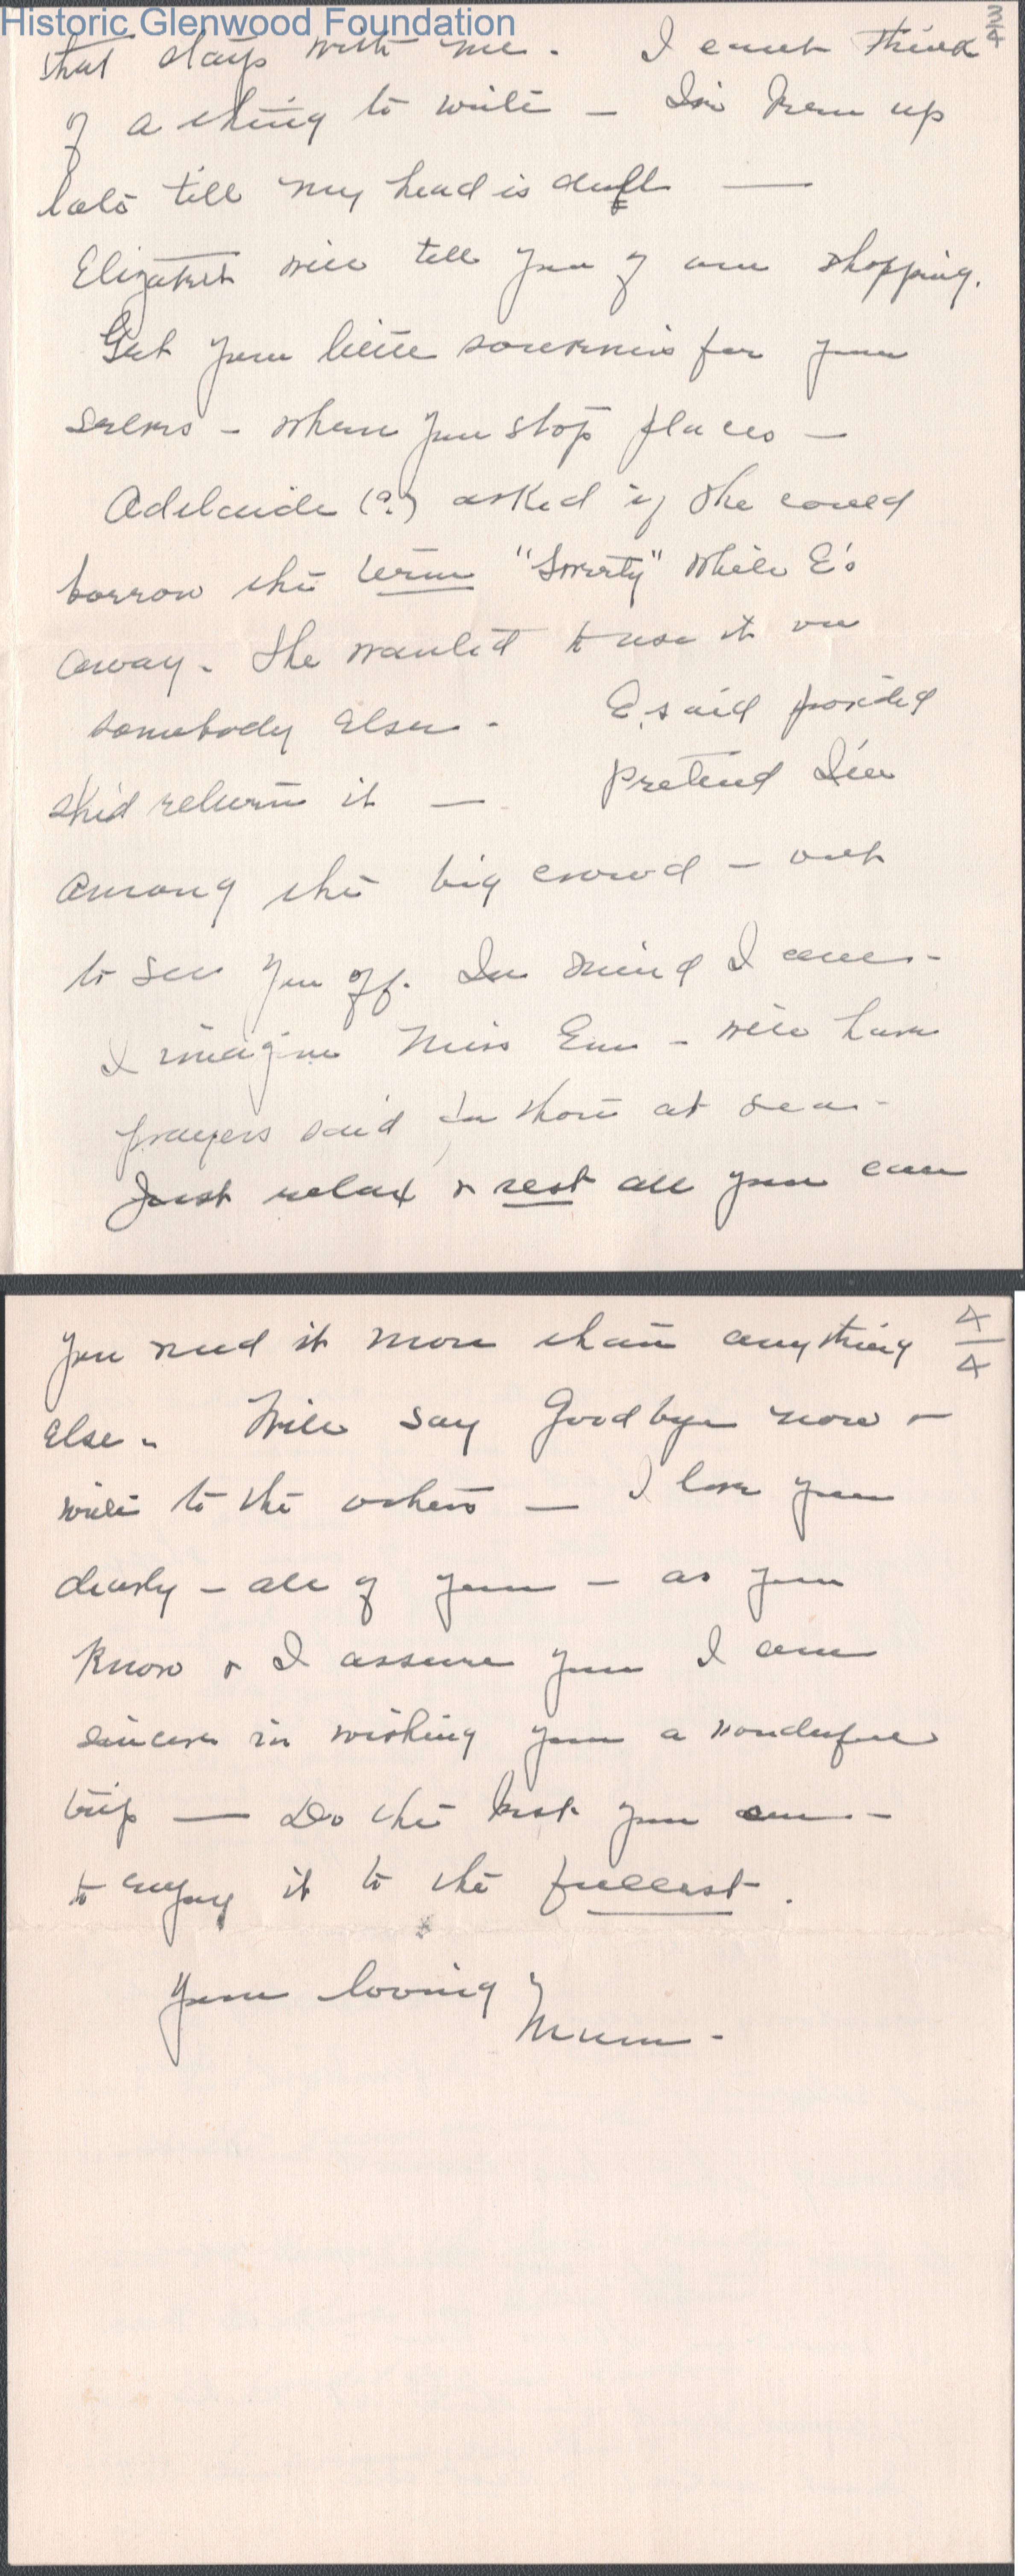 Historic Glenwood Foundation
3/4
that stays with me. I can't think
of a thing to write – I've been up
late till my head is dull —
Elizabeth will tell you of our shopping.
Get your little souvenirs for your
selves – when you stop places –
Adelaide (?) asked if she could
borrow the term "Smarty" while E's
away. She wanted to use it on
somebody else. E. said provided
she'd return it — Pretend I'm
among the big crowd – out
to see you off. In mind I am.
I imagine Miss – will have
prayers said for those at sea –
Just relax & rest all you can
4/4
you need it more than anything
else. Will say Goodbye now –
write to the others – I love you
dearly – all of you – as you
know & I assure you I am
sincere in wishing you a wonderful
trip — Do the best you can –
to enjoy it to the fullest.
Your loving
Mum –